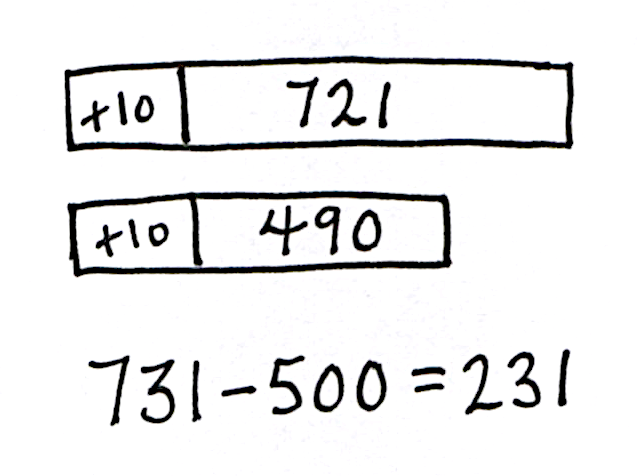 +10 721
+10 490
731-500=231